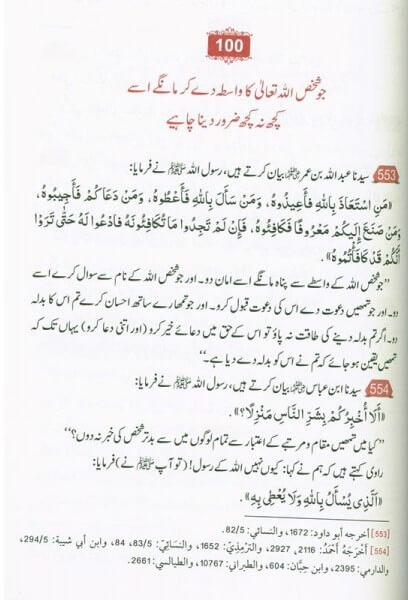 100
جو شخص اللہ تعالیٰ کا واسطہ دے کر مانگے اسے
کچھ نہ کچھ ضرور دینا چاہیے
553 سیدنا عبداللہ بن عمر رضی اللہ عنہما بیان کرتے ہیں، رسول اللہ ﷺ نے فرمایا:
«مَنِ اسْتَعَاذَ بِاللهِ فَأَعِيذُوهُ، وَمَنْ سَأَلَ بِاللهِ فَأَعْطُوهُ، وَمَنْ دَعَاكُمْ فَأَجِيبُوهُ،
وَمَنْ صَنَعَ إِلَيْكُمْ مَعْرُوفًا فَكَافِئُوهُ، فَإِنْ لَمْ تَجِدُوا مَا تُكَافِئُونَهُ فَادْعُوا لَهُ حَتَّى تَرَوْا
أَنَّكُمْ قَدْ كَافَأْتُمُوهُ».
’’جو شخص اللہ کے واسطے سے پناہ مانگے اسے امان دو۔ اور جو شخص اللہ کے نام سے سوال کرے اسے
دو۔ اور جو تمھیں دعوت دے اس کی دعوت قبول کرو۔ اور جو تمھارے ساتھ احسان کرے تم اس کا بدلہ
دو۔ اگر تم بدلہ دینے کی طاقت نہ پاؤ تو اس کے حق میں دعائے خیر کرو (اور اتنی دعا کرو) یہاں تک کہ
تمھیں یقین ہو جائے کہ تم نے اس کو بدلہ دے دیا ہے۔‘‘
554 سیدنا ابن عباس رضی اللہ عنہما بیان کرتے ہیں، رسول اللہ ﷺ نے فرمایا:
«أَلَا أُخْبِرُكُمْ بِشَرِّ النَّاسِ مَنْزِلًا؟».
’’کیا میں تمھیں مقام و مرتبے کے اعتبار سے تمام لوگوں میں سے بدتر شخص کی خبر نہ دوں؟‘‘
راوی کہتے ہیں کہ ہم نے کہا: کیوں نہیں اللہ کے رسول! (تو آپ ﷺ نے) فرمایا:
«الَّذِي يُسْأَلُ بِاللهِ وَلَا يُعْطِي بِهِ».
[553] أخرجه أبو داود: 1672، والنسائي: 82/5.
[554] أَخْرَجَهُ أَحْمَدُ: 2116، 2927، والتِّرْمِذِيّ: 1652، والنسَائِيّ: 83/5، 84، وابن أبي شيبة: 294/5،
والدارمي: 2395، وابن حِبَّان: 604، والطبراني: 10767، والطيالسي: 2661.